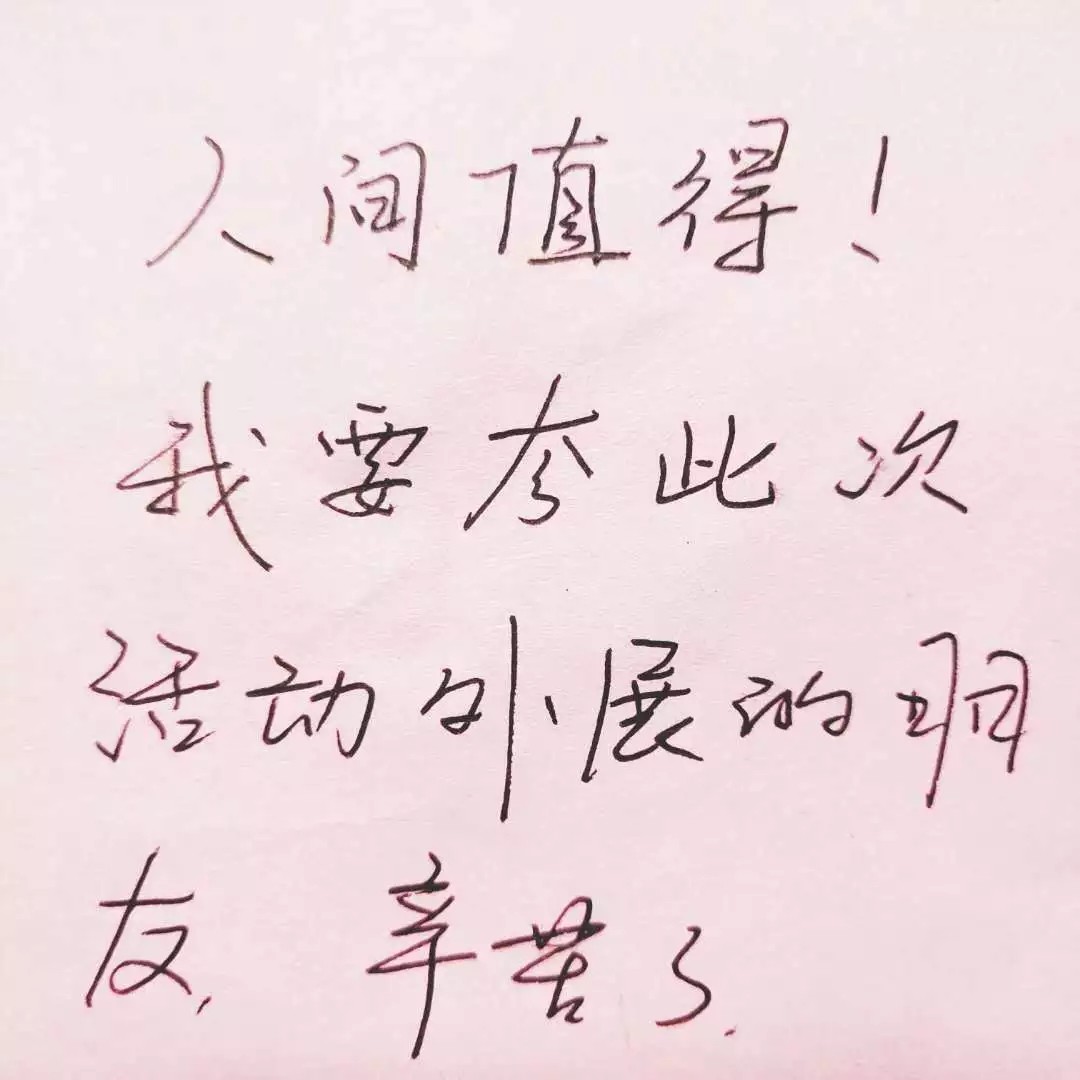 人间值得！
我要夸此次
活动外展的朋
友，辛苦了.